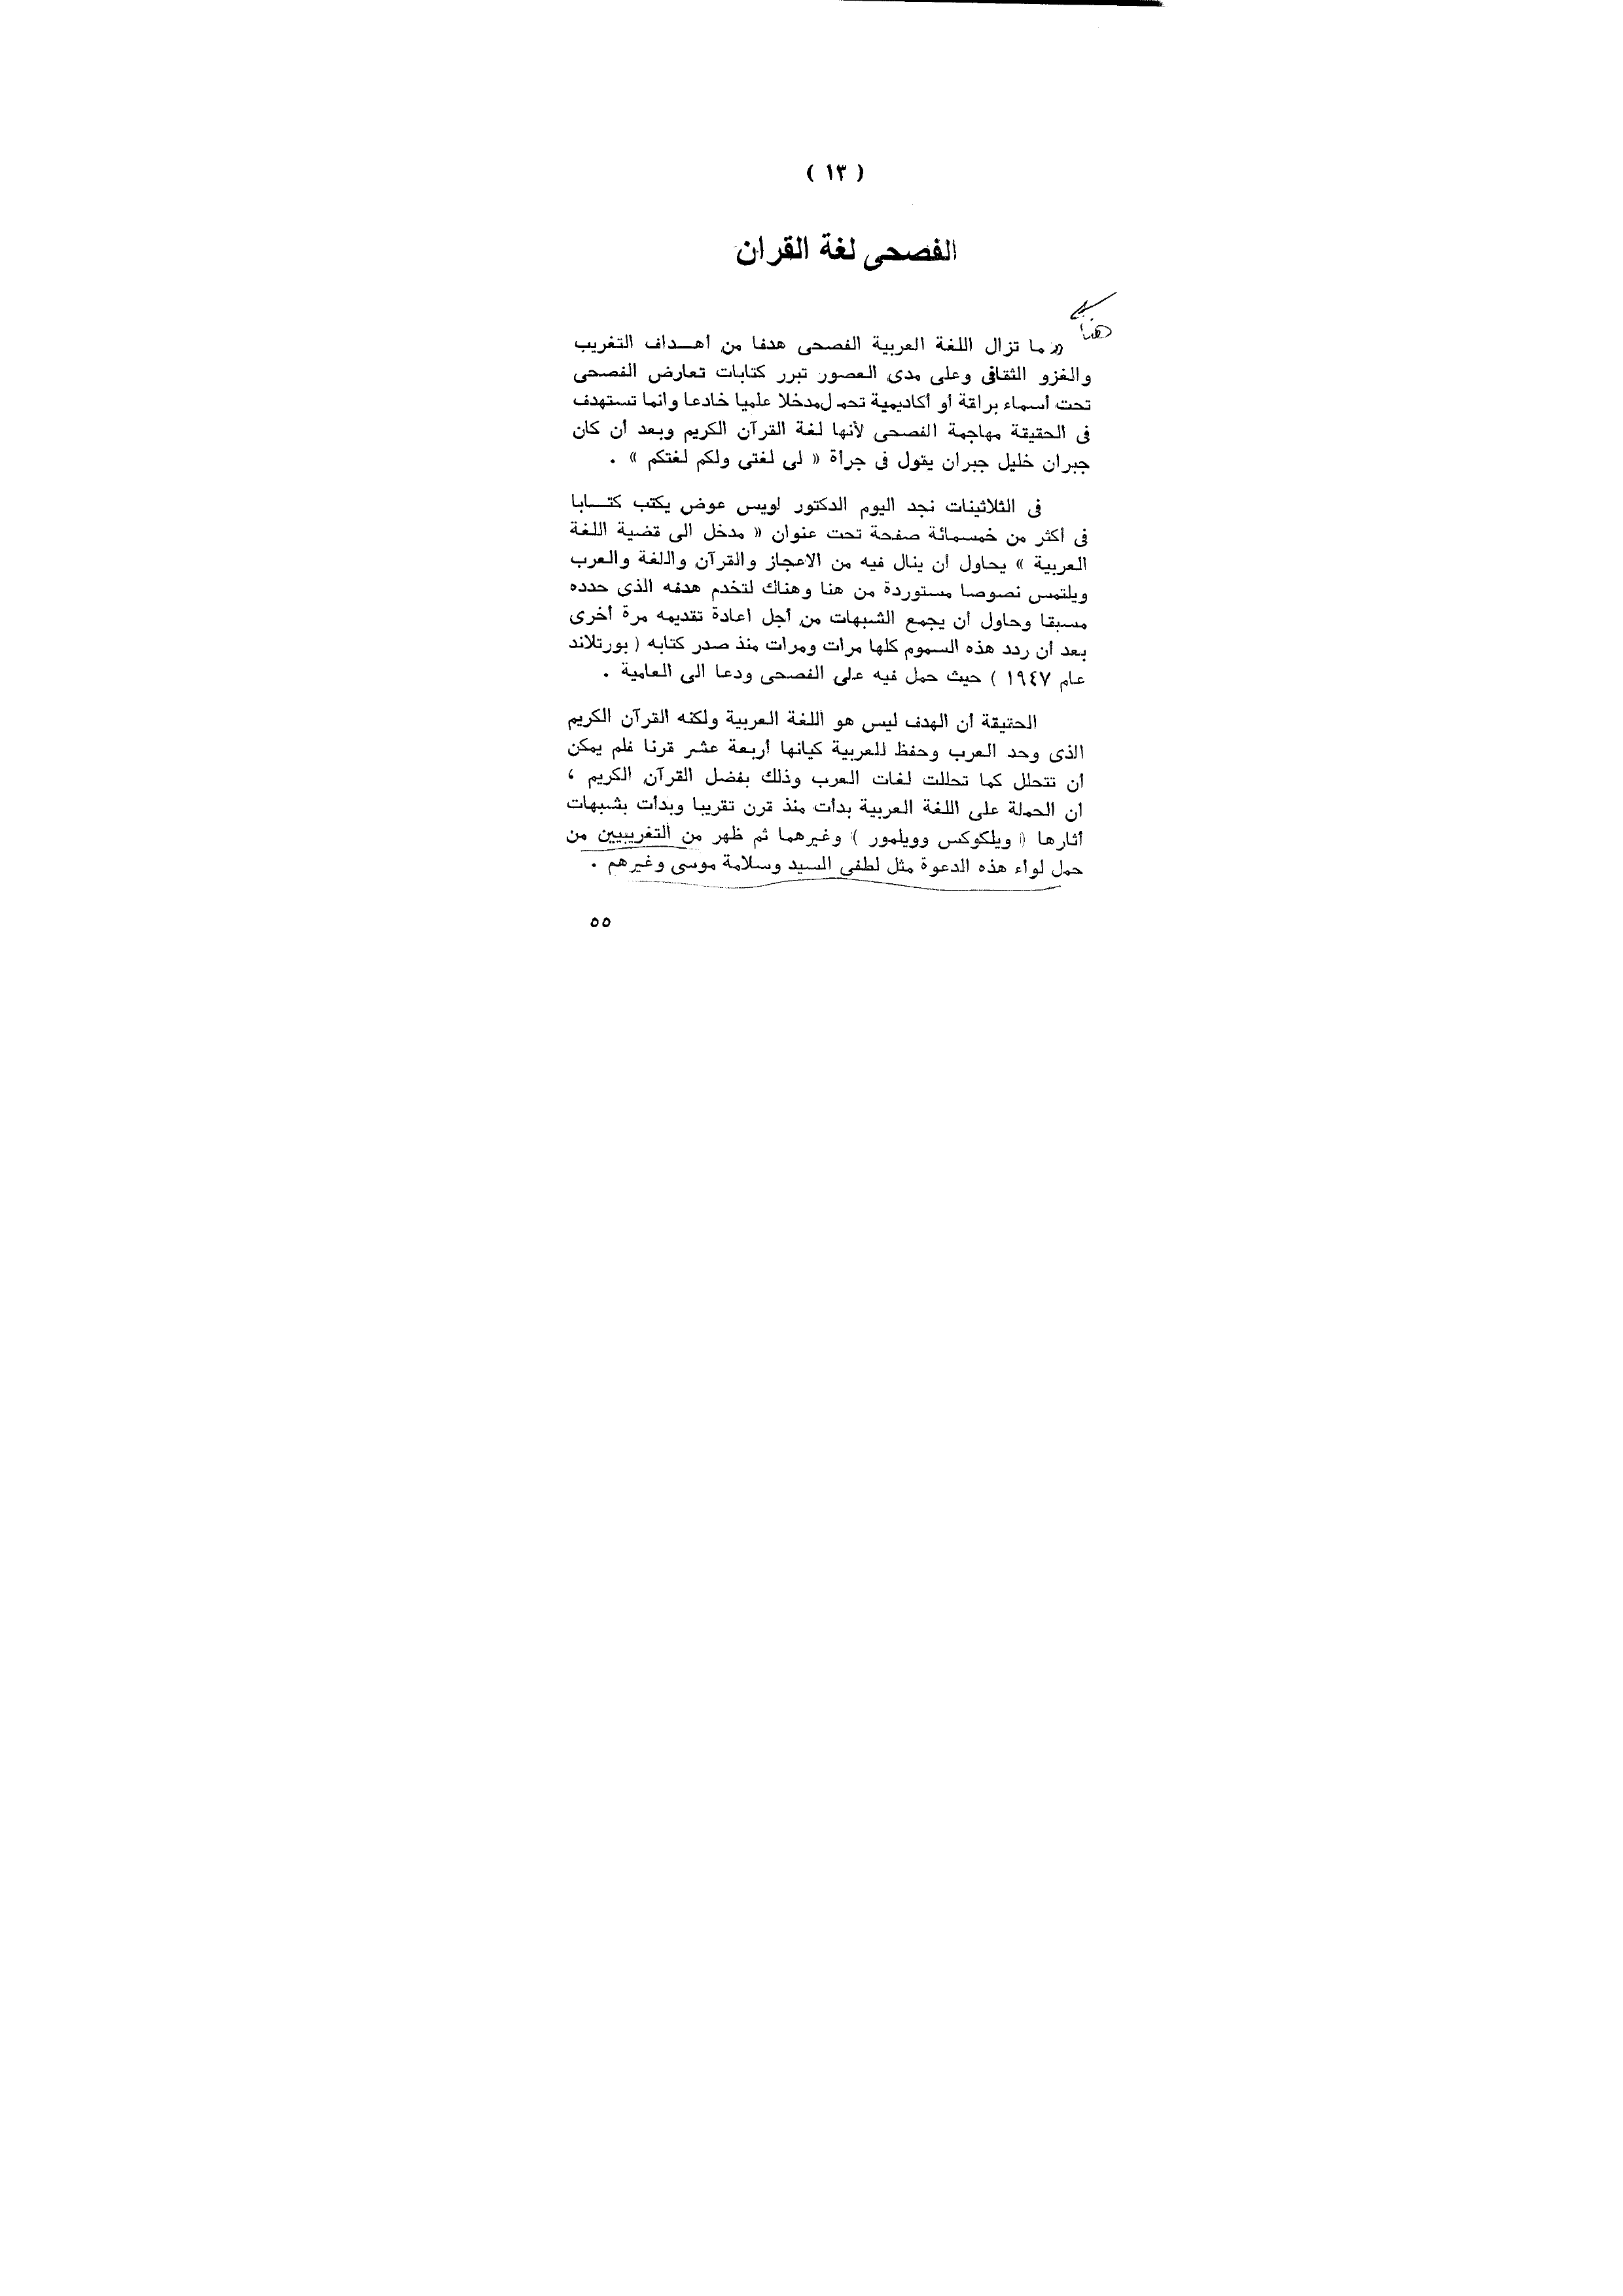 ( ١٣ )
الفصحى لغة القران
هنا
« ما تزال اللغة العربية الفصحى هدفا من أهــداف التغريب
والغزو الثقافى وعلى مدى العصور تبرر كتابات تعارض الفصحى
تحت أسماء براقة أو أكاديمية تحمل مدخلا علميا خادعا وانما تستهدف
فى الحقيقة مهاجمة الفصحى لأنها لغة القرآن الكريم وبعد أن كان
جبران خليل جبران يقول فى جرأة « لى لغتى ولكم لغتكم » .
فى الثلاثينات نجد اليوم الدكتور لويس عوض يكتب كتــابا
فى أكثر من خمسمائة صفحة تحت عنوان « مدخل الى قضية اللغة
العربية » يحاول أن ينال فيه من الاعجاز والقرآن واللغة والعرب
ويلتمس نصوصا مستوردة من هنا وهناك لتخدم هدفه الذى حدده
مسبقا وحاول أن يجمع الشبهات من أجل اعادة تقديمه مرة أخرى
بعد أن ردد هذه السموم كلها مرات ومرات منذ صدر كتابه ( بورتلاند
عام ١٩٤٧ ) حيث حمل فيه على الفصحى ودعا الى العامية .
الحقيقة أن الهدف ليس هو اللغة العربية ولكنه القرآن الكريم
الذى وحد العرب وحفظ للعربية كيانها أربعة عشر قرنا فلم يمكن
أن تتحلل كما تحللت لغات العرب وذلك بفضل القرآن الكريم ،
ان الحملة على اللغة العربية بدأت منذ قرن تقريبا وبدأت بشبهات
أثارها ( ويلكوكس وويلمور ) وغيرهما ثم ظهر من التغريبيين من
حمل لواء هذه الدعوة مثل لطفى السيد وسلامة موسى وغيرهم .
٥٥